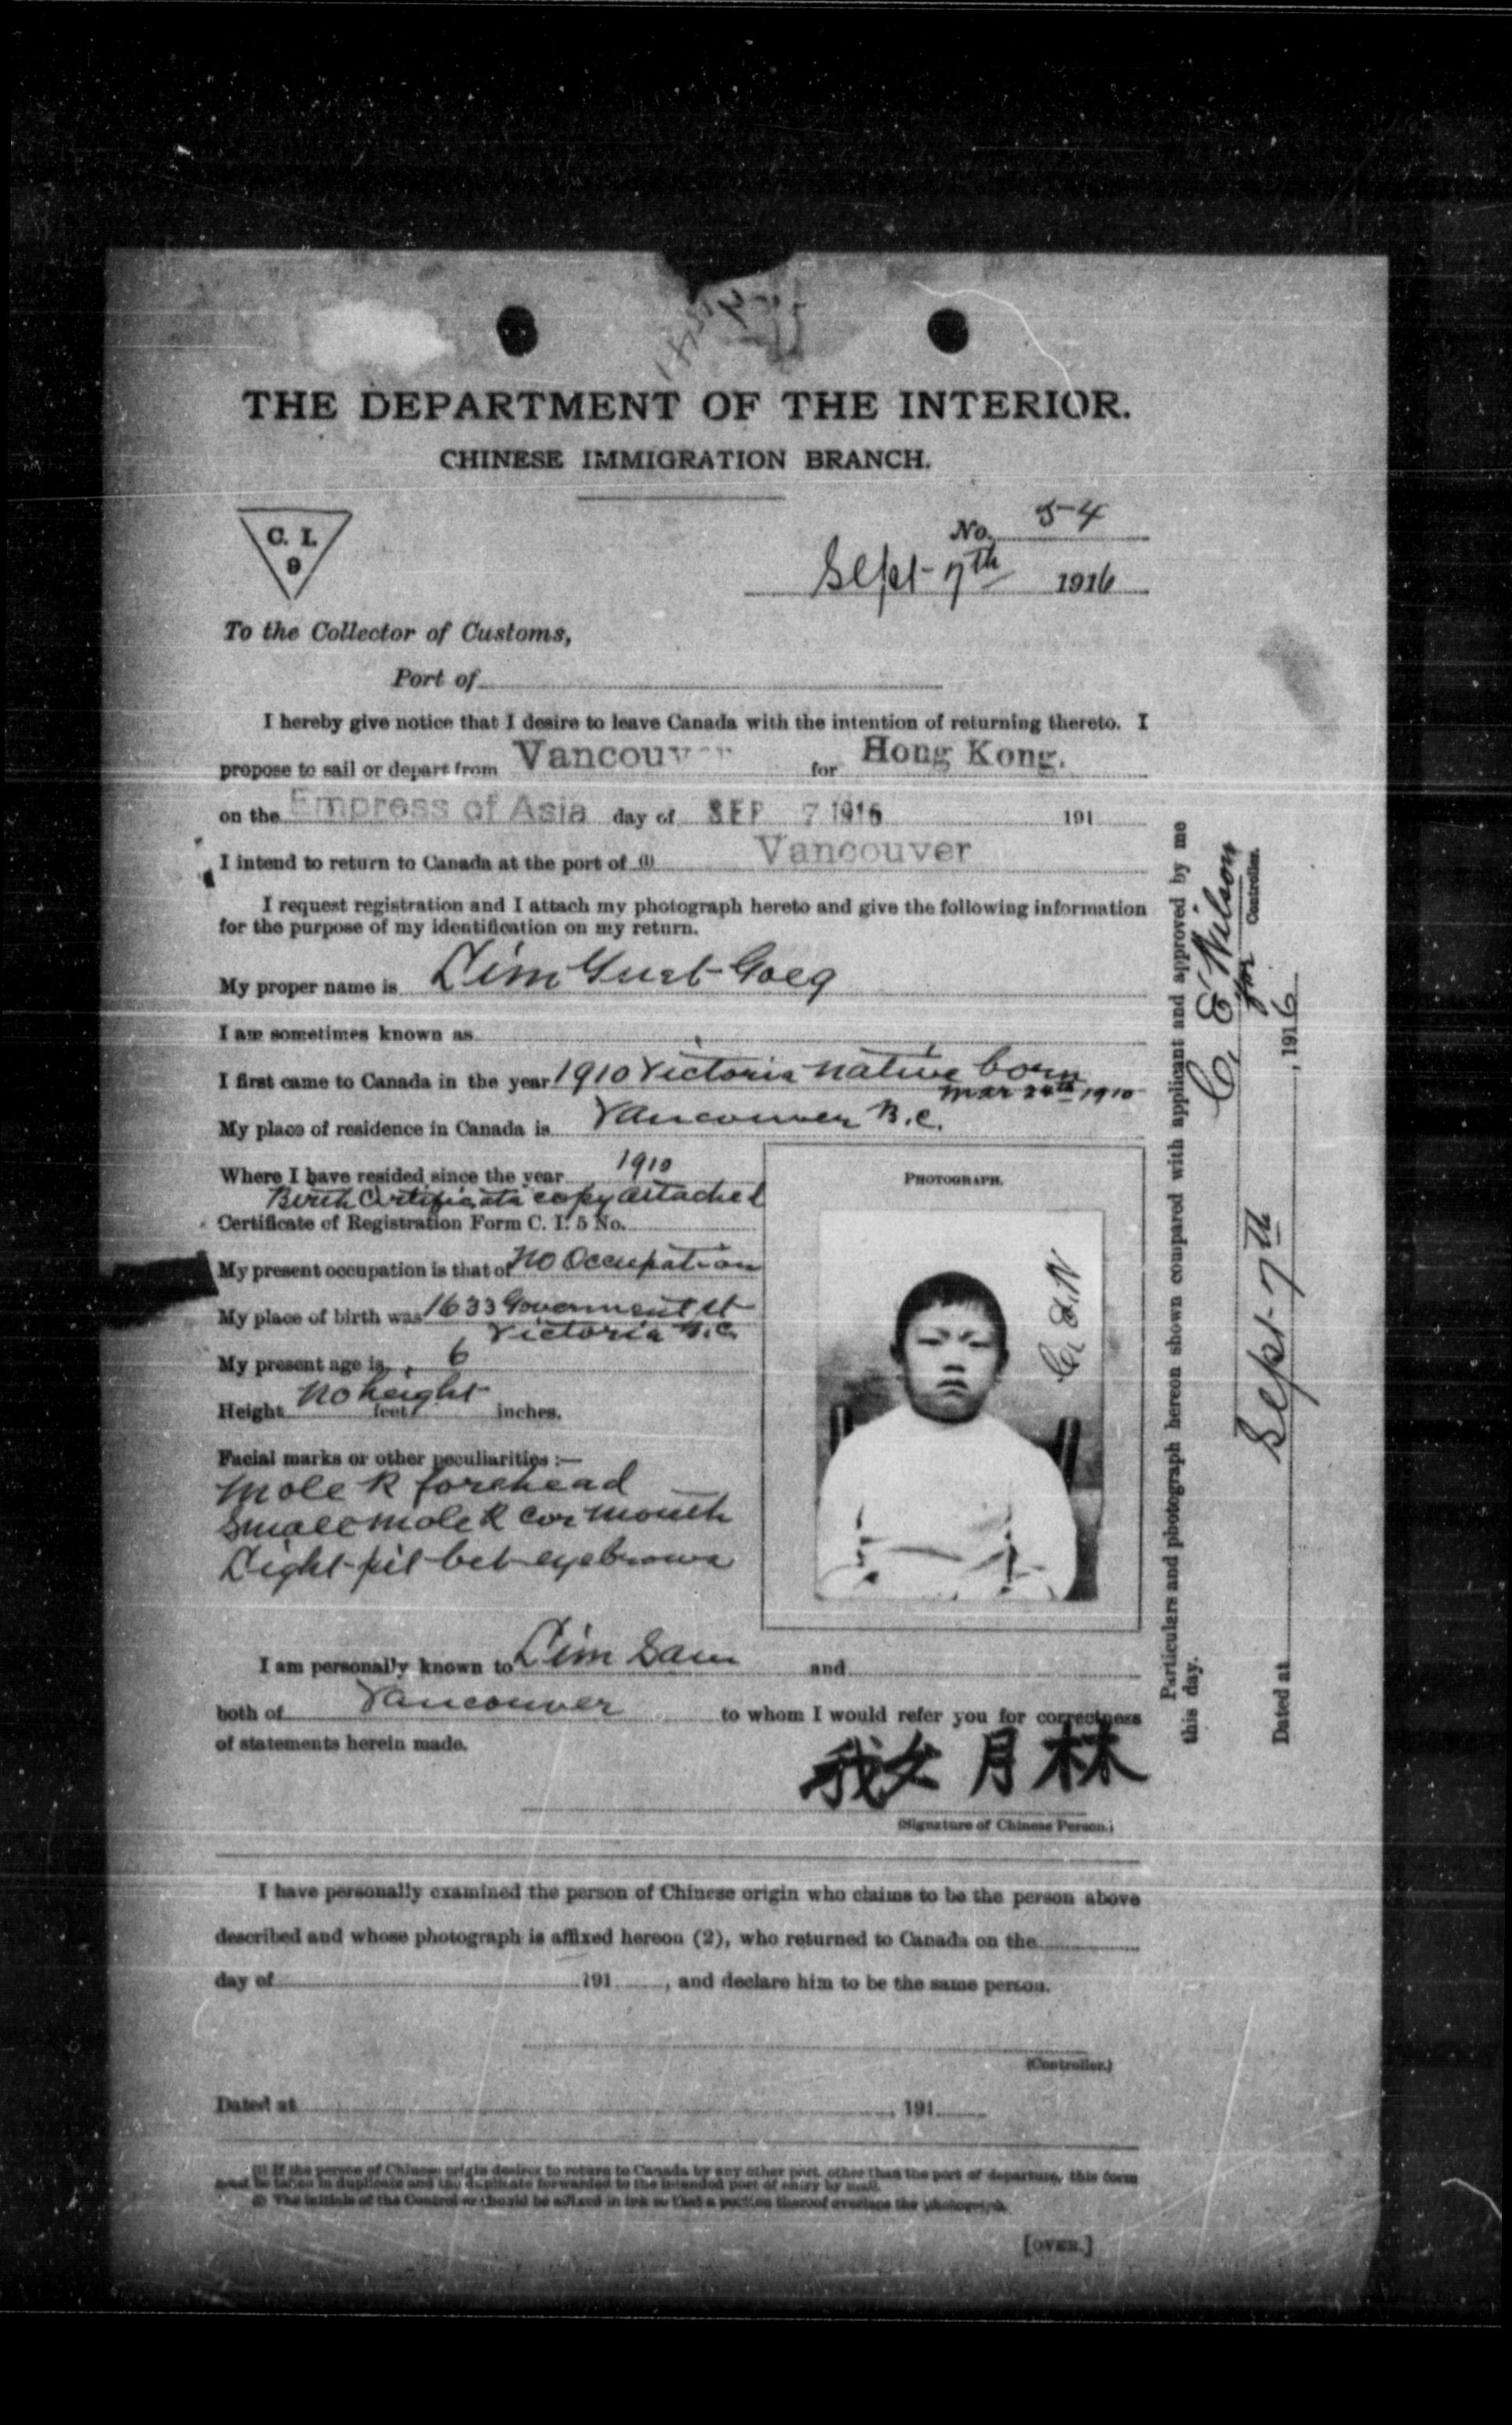 THE DEPARTMENT OF THE INTERIOR.
CHINESE IMMIGRATION BRANCH.
C. I.
9
No. 54
Sept 7th 1916
To the Collector of Customs,
Port of
I hereby give notice that I desire to leave Canada with the intention of returning thereto. I
propose to sail or depart from Vancouver for Hong Kong.
on the Empress of Asia day of SEP 7 1916 191
I intend to return to Canada at the port of (1) Vancouver
I request registration and I attach my photograph hereto and give the following information
for the purpose of my identification on my return.
My proper name is Lim
I am sometimes known as
I first came to Canada in the year 1910 Victoria native born
Mar 24th 1910
My place of residence in Canada is Vancouver B.C.
Where I have resided since the year 1910
Birth Certificate copy attached
Certificate of Registration Form C. I. 5 No.
My present occupation is that of No Occupation
My place of birth was 1633 Government St
Victoria B.C.
My present age is 6
Height No height feet inches.
Facial marks or other peculiarities :—
Mole R forehead
Small mole R cor mouth
Light pit bet eyebrows
PHOTOGRAPH.
C. E. W
I am personally known to Lim Sam and
both of Vancouver to whom I would refer you for correctness
of statements herein made.
月林
(Signature of Chinese Person.)
I have personally examined the person of Chinese origin who claims to be the person above
described and whose photograph is affixed hereon (2), who returned to Canada on the
day of 191 , and declare him to be the same person.
(Controller.)
Dated at , 191
(1) If the person of Chinese origin desires to return to Canada by any other port, other than the port of departure, this form
must be taken in duplicate and the duplicate forwarded to the intended port of entry by mail.
(2) The initials of the Controller should be affixed in ink so that a portion thereof overlaps the photograph.
[OVER.]
Particulars and photograph hereon shown compared with applicant and approved by me
this day.
C. E. Wilson
for Controller.
Dated at Sept 7th , 1916